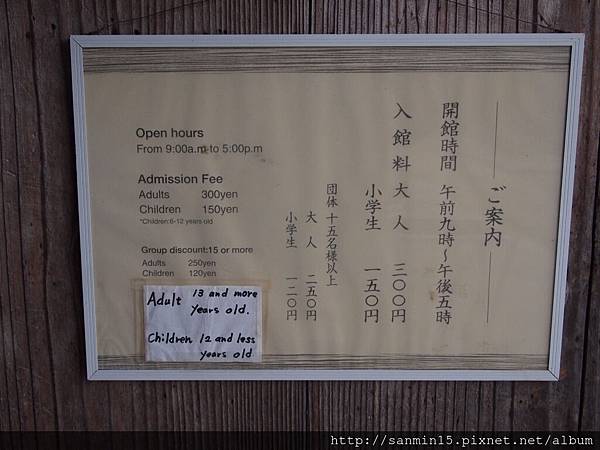 Open hours
From 9:00a.m to 5:00p.m
Admission Fee
Adults 300yen
Children 150yen
*Children:6-12 years old
Group discount:15 or more
Adults 250yen
Children 120yen
Adult 13 and more
years old.
Children 12 and less
years old
ご案内
開館時間 午前九時〜午後五時
入館料 大人 三〇〇円
小学生 一五〇円
団体 十五名様以上
大人 二五〇円
小学生 一二〇円
http://sanmin15.pixnet.net/album